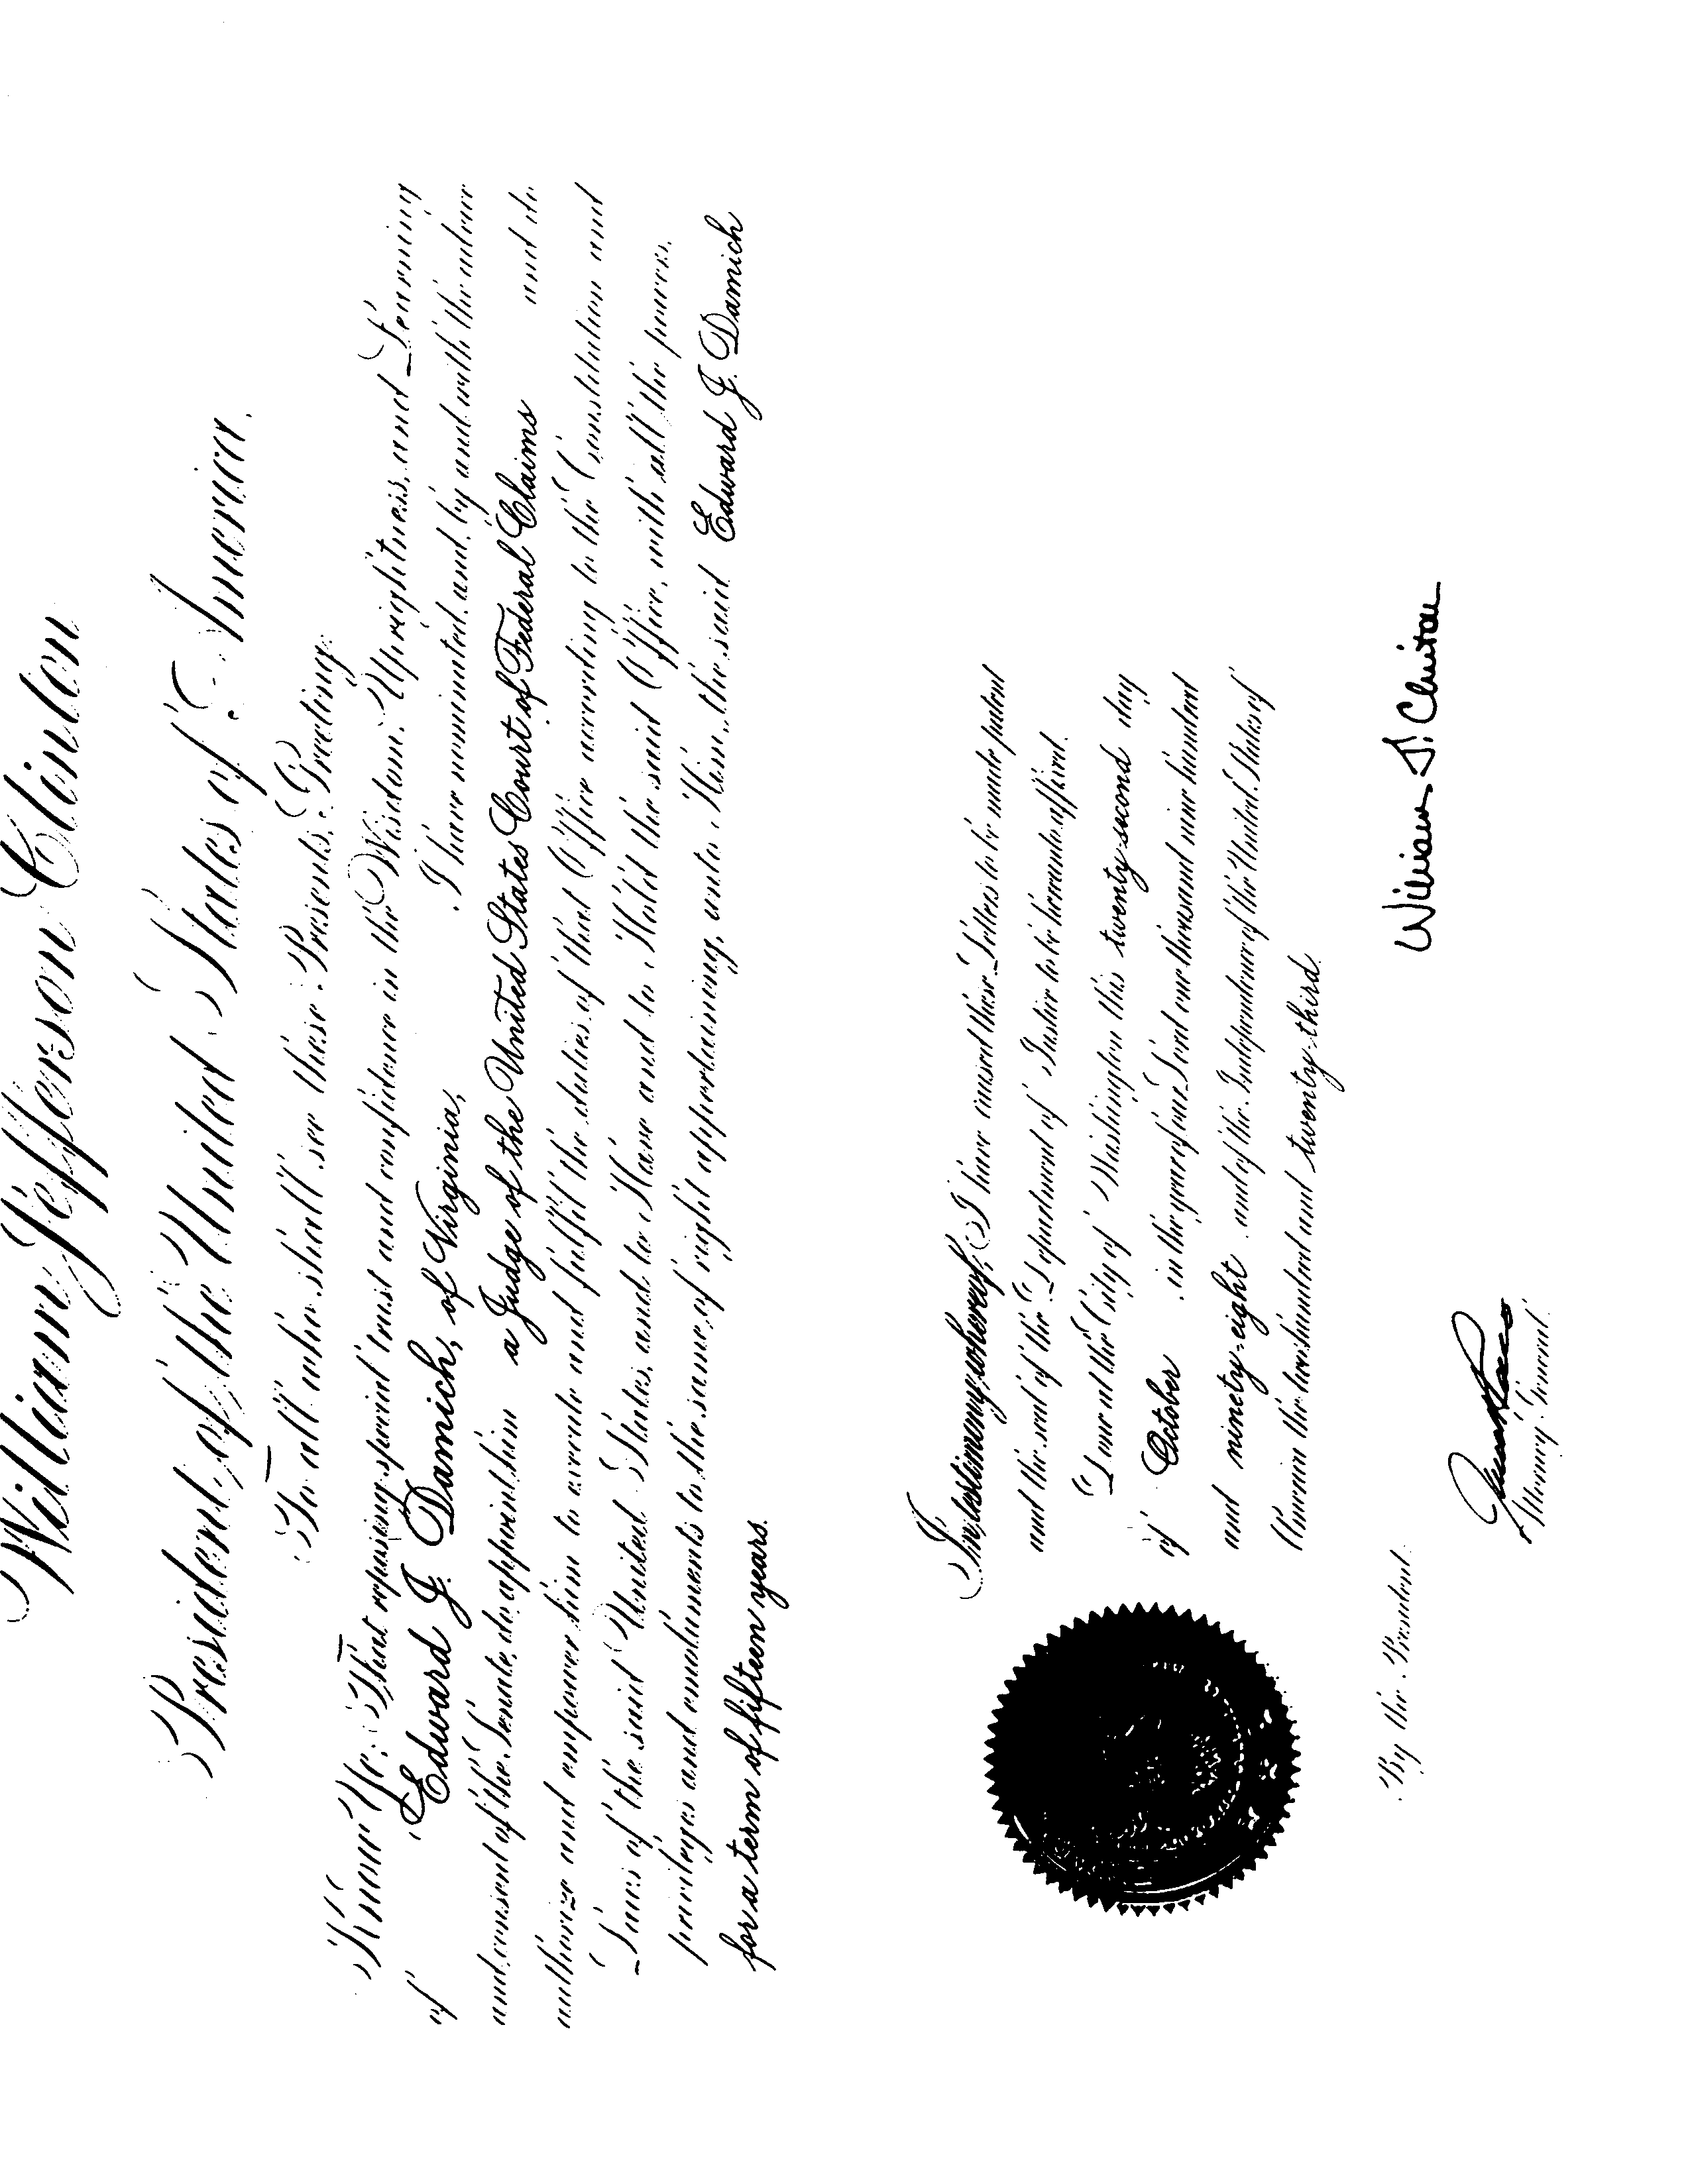 William Jefferson Clinton
President of the United States of America.
To all who shall see these Presents, Greeting:
Know Ye; That reposing special trust and confidence in the Wisdom, Uprightness, and Learning
of Edward J. Damich, of Virginia, I have nominated, and, by and with the advice
and consent of the Senate, do appoint him a Judge of the United States Court of Federal Claims and do
authorize and empower him to execute and fulfil the duties of that Office according to the Constitution and
Laws of the said United States, and to Have and to Hold the said Office, with all the powers,
privileges and emoluments to the same of right appertaining, unto Him, the said Edward J. Damich
for a term of fifteen years.
In testimony whereof, I have caused these Letters to be made patent
and the seal of the Department of Justice to be hereunto affixed.
Done at the City of Washington this twenty-second day
of October in the year of our Lord one thousand nine hundred
and ninety-eight and of the Independence of the United States of
America the two hundred and twenty-third.
William J. Clinton
By the President:
Attorney General.